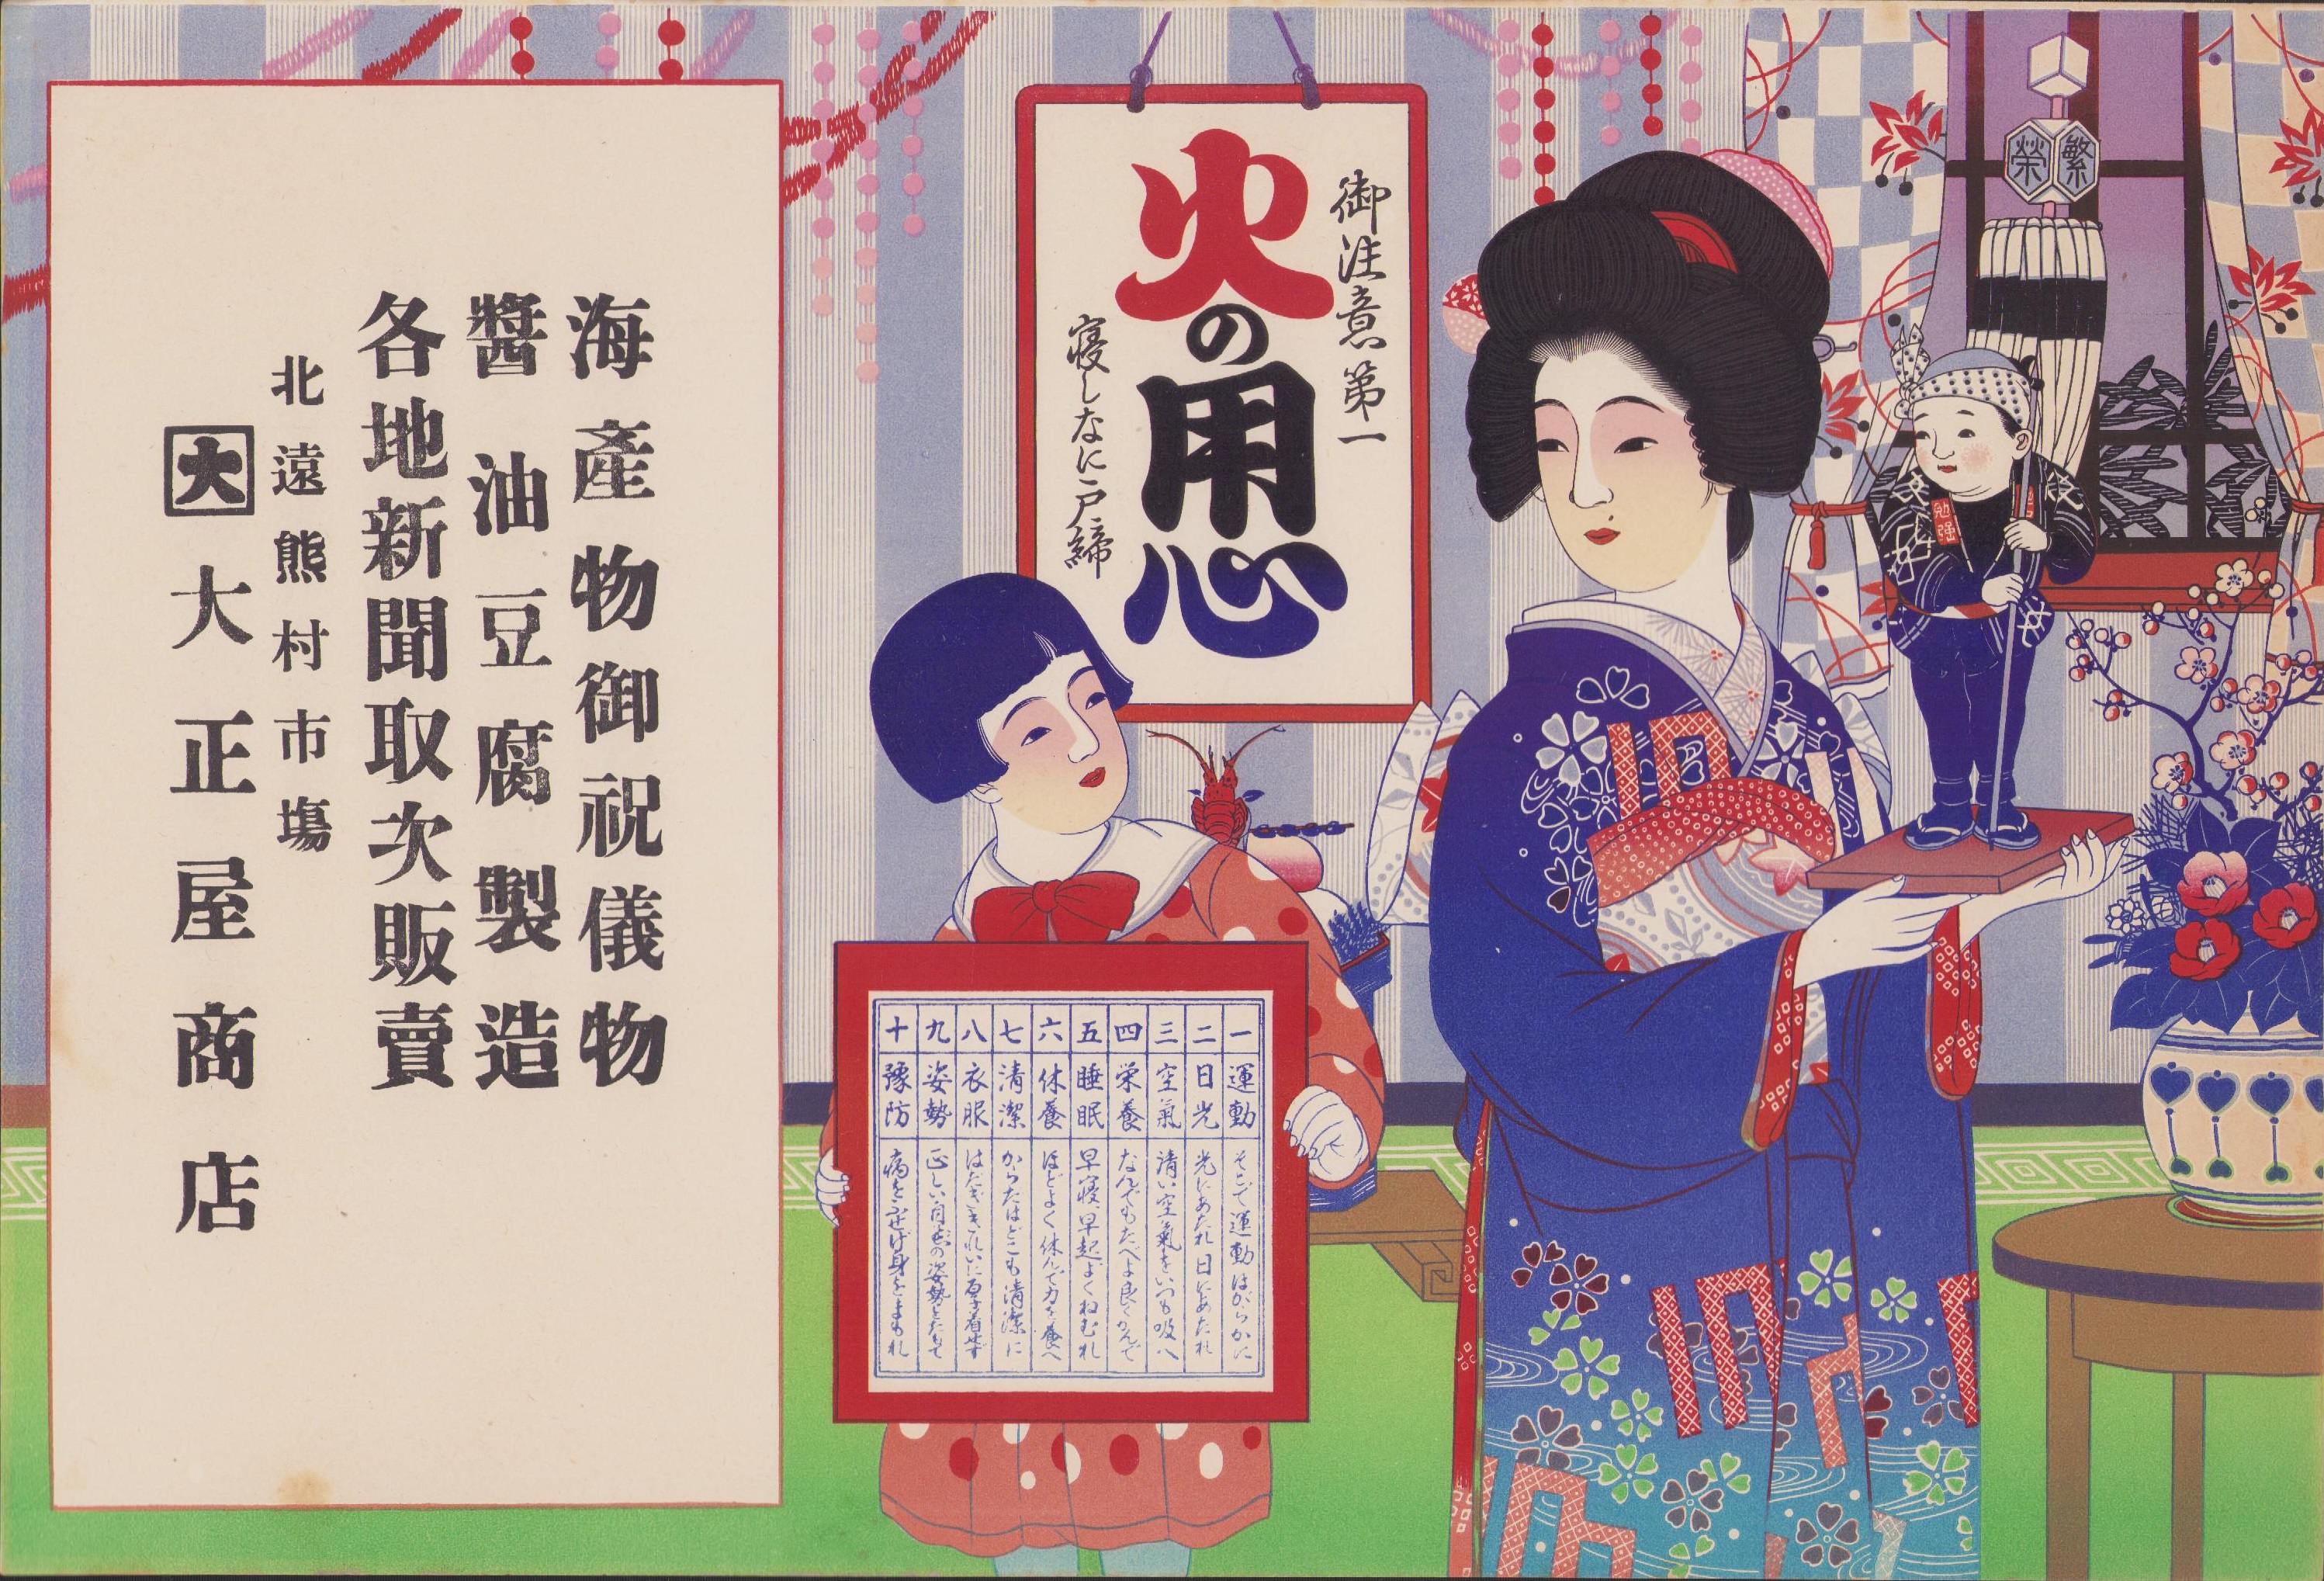 繁
榮
勉強
御注意第一
火の用心
寝しなに戸締
一 運動 そとで運動ほがらかに
二 日光 光にあたれ日にあたれ
三 空氣 清い空氣をいつも吸へ
四 栄養 なんでもたべよ良くかんで
五 睡眠 早寝早起よくねむれ
六 休養 ほどよく休んで力を養へ
七 清潔 からだはどこも清潔に
八 衣服 はだぎきれいに厚着せず
九 姿勢 正しい自然の姿勢をたもて
十 豫防 病をふせげ身をまもれ
海產物御祝儀物
醬油豆腐製造
各地新聞取次販賣
北遠熊村市塲
大 大正屋商店